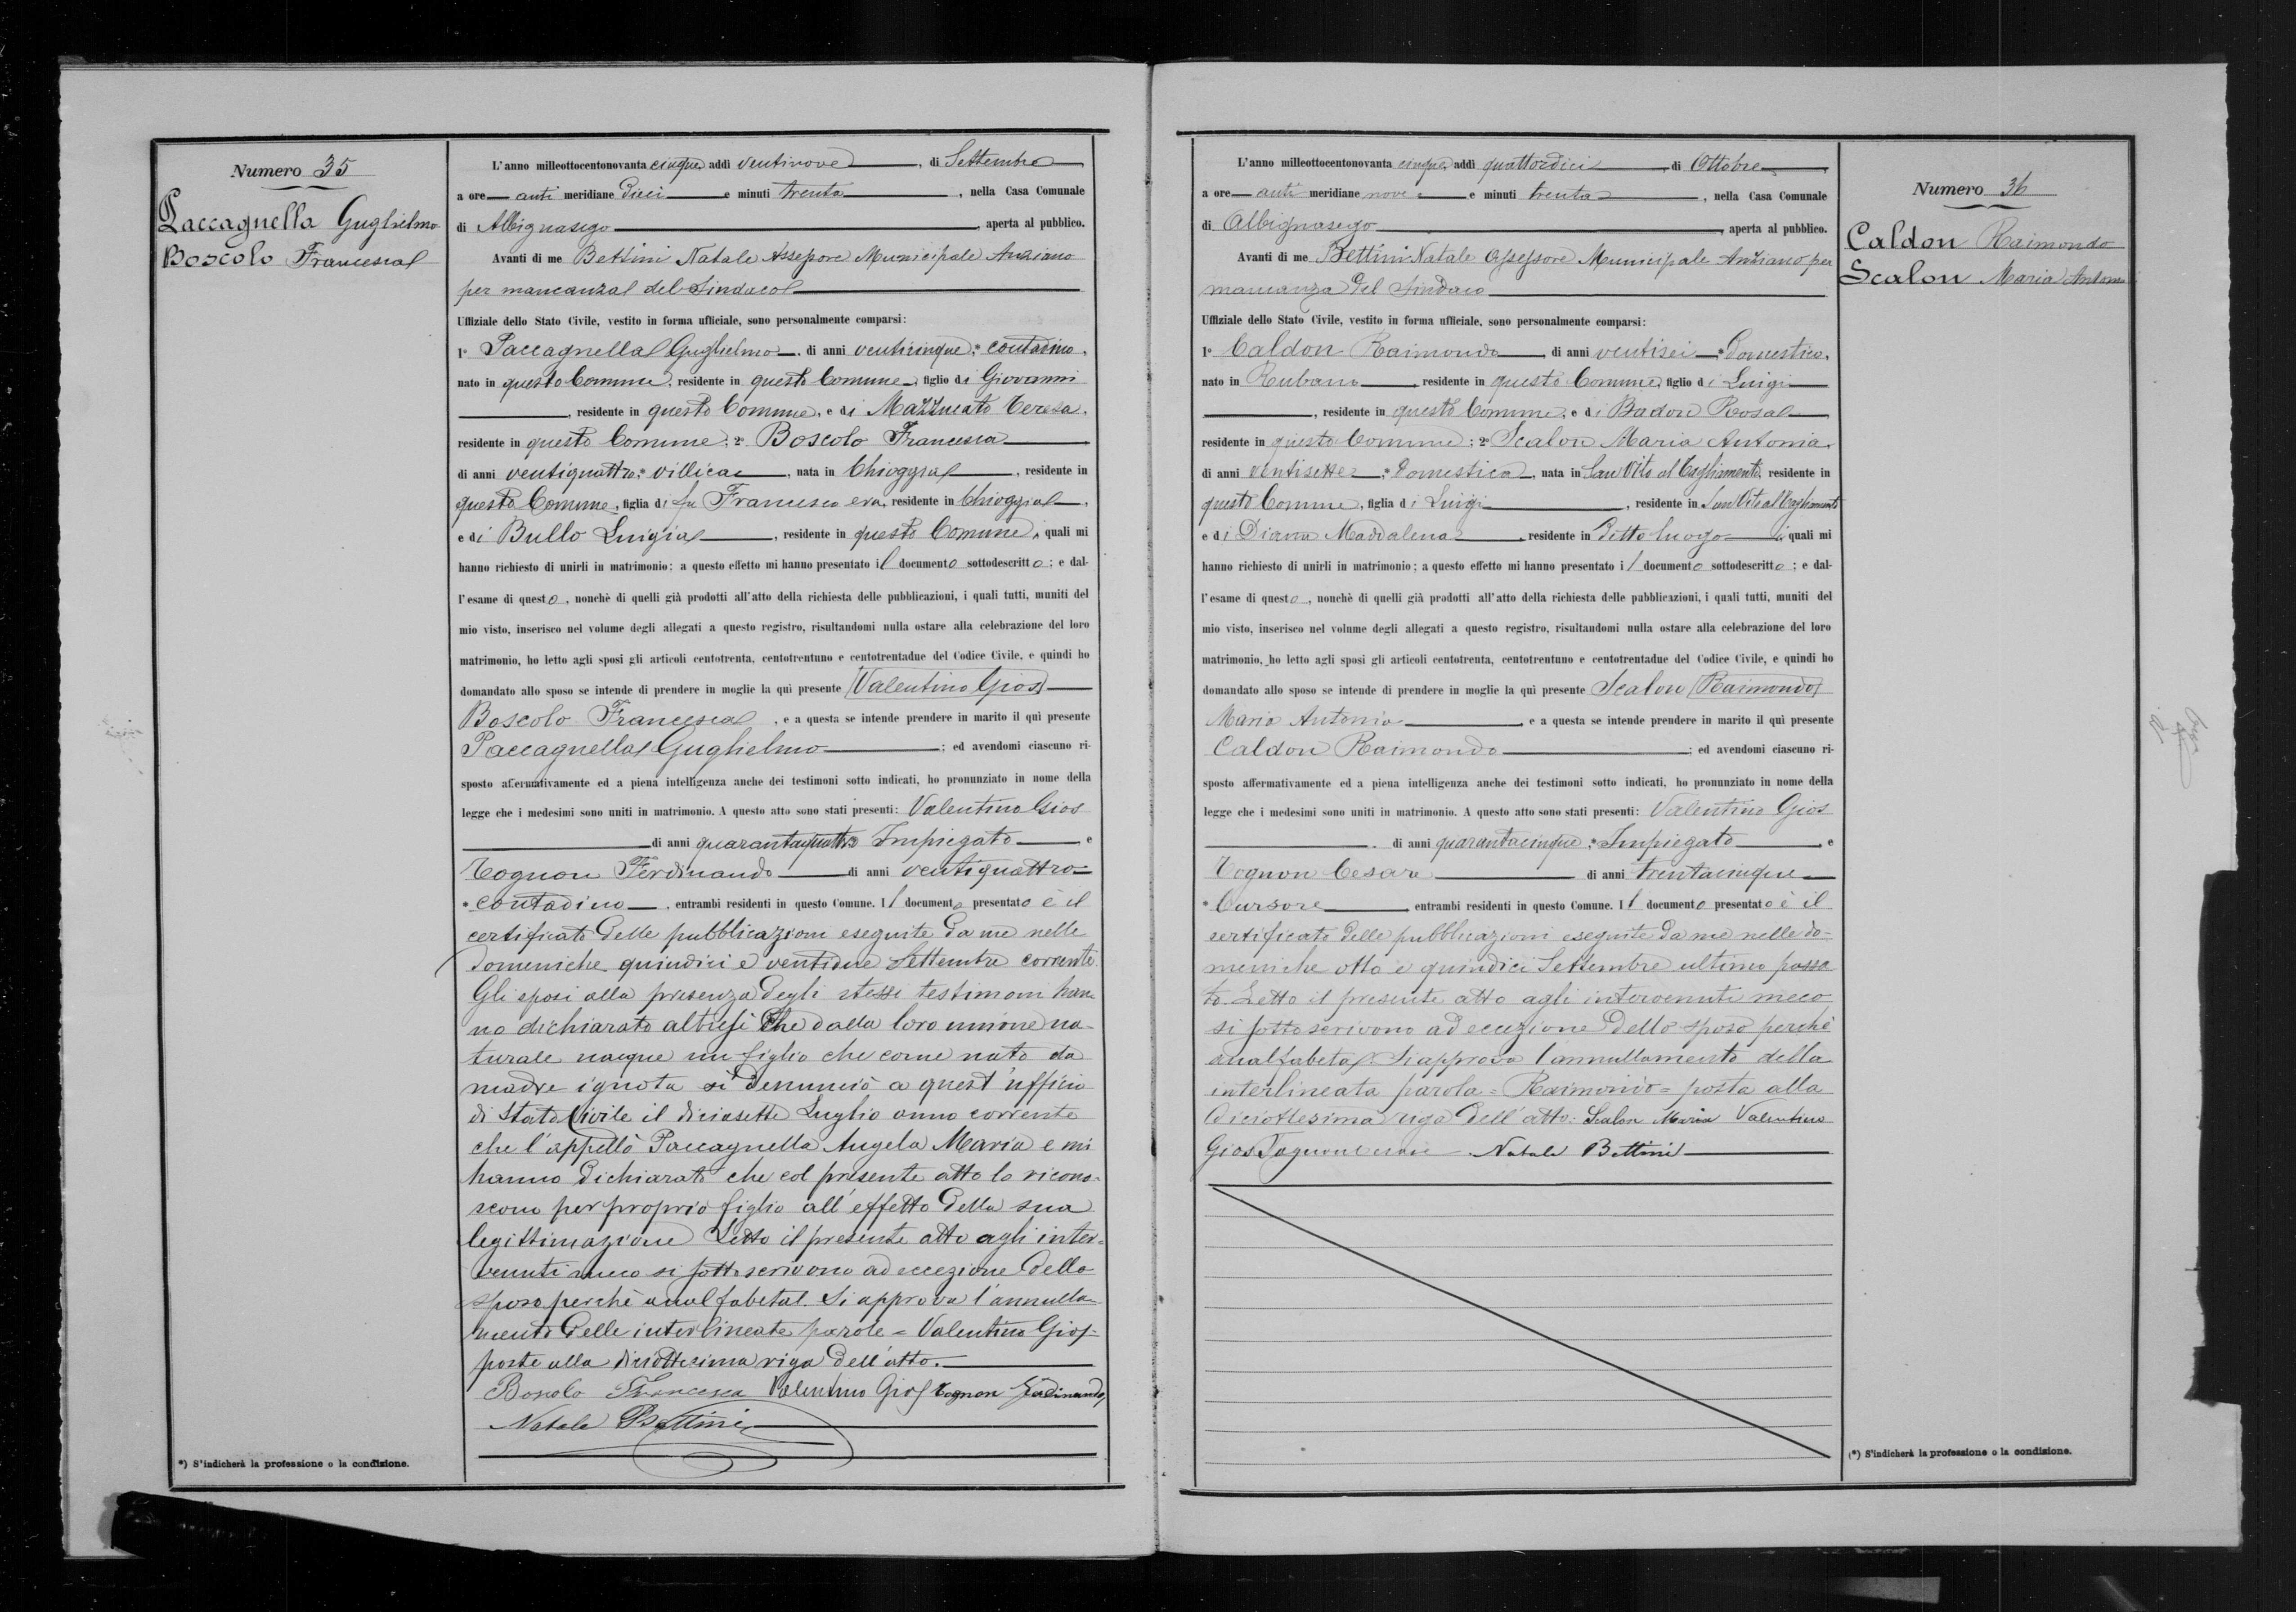 Numero 35
Paccagnella Guglielmo
Boscolo Francesca
L'anno milleottocentonovanta cinque addì ventinove, di Settembre
a ore anti meridiane dieci e minuti trenta, nella Casa Comunale
di Albignasego, aperta al pubblico.
Avanti di me Bettini Natale Assessore Municipale Anziano
per mancanza del Sindaco
Uffiziale dello Stato Civile, vestito in forma ufficiale, sono personalmente comparsi:
1° Paccagnella Guglielmo, di anni venticinque, * contadino,
nato in questo Comune, residente in questo Comune, figlio di Giovanni
, residente in questo Comune, e di Mazzucato Teresa,
residente in questo Comune; 2° Boscolo Francesca
di anni ventiquattro, * villica, nata in Chioggia, residente in
questo Comune, figlia di fu Francesco era, residente in Chioggia,
e di Bullo Luigia, residente in questo Comune, i quali mi
hanno richiesto di unirli in matrimonio: a questo effetto mi hanno presentato il documento sottodescritto; e dal-
l'esame di questo, nonchè di quelli già prodotti all'atto della richiesta delle pubblicazioni, i quali tutti, muniti del
mio visto, inserisco nel volume degli allegati a questo registro, risultandomi nulla ostare alla celebrazione del loro
matrimonio, ho letto agli sposi gli articoli centotrenta, centotrentuno e centotrentadue del Codice Civile, e quindi ho
domandato allo sposo se intende di prendere in moglie la quì presente (Valentino Gios)
Boscolo Francesca, e a questa se intende prendere in marito il quì presente
Paccagnella Guglielmo; ed avendomi ciascuno ri-
sposto affermativamente ed a piena intelligenza anche dei testimoni sotto indicati, ho pronunziato in nome della
legge che i medesimi sono uniti in matrimonio. A questo atto sono stati presenti: Valentino Gios
di anni quarantaquattro Impiegato e
Tognon Ferdinando di anni ventiquattro
* contadino, entrambi residenti in questo Comune. Il documento presentato è il
certificato delle pubblicazioni eseguite da me nelle
domeniche quindici e ventidue Settembre corrente.
Gli sposi alla presenza degli stessi testimoni han
no dichiarato altresì che dalla loro unione na-
turale nacque un figlio che come nato da
madre ignota si denunciò a quest'ufficio
di Stato Civile il diciasette Luglio anno corrente
che l'appellò Paccagnella Angela Maria e mi
hanno dichiarato che col presente atto lo ricono-
scono per proprio figlio all'effetto della sua
legittimazione Letto il presente atto agli inter-
venuti meco si sottoscrivono ad eccezione dello
sposo perchè analfabeta. Si approva l'annulla-
mento delle interlineate parole = Valentino Gios =
poste alla diciottesima riga dell'atto.
Boscolo Francesca Valentino Gios Tognon Ferdinando
Natale Bettini
*) S'indicherà la professione o la condizione.
L'anno milleottocentonovanta cinque, addì quattordici di Ottobre
a ore anti meridiane nove e minuti trenta, nella Casa Comunale
di Albignasego, aperta al pubblico.
Avanti di me Bettini Natale Assessore Municipale Anziano per
mancanza del Sindaco
Uffiziale dello Stato Civile, vestito in forma ufficiale, sono personalmente comparsi:
1° Caldon Raimondo, di anni ventisei, * domestico,
nato in Rubano, residente in questo Comune, figlio di Luigi
, residente in questo Comune, e di Badon Rosa
residente in questo Comune; 2° Scalon Maria Antonia,
di anni ventisette, * domestica, nata in San Vito al Tagliamento, residente in
questo Comune, figlia di Luigi, residente in San Vito al Tagliamento
e di Diana Maddalena, residente in detto luogo, i quali mi
hanno richiesto di unirli in matrimonio; a questo effetto mi hanno presentato il documento sottodescritto; e dal-
l'esame di questo, nonchè di quelli già prodotti all'atto della richiesta delle pubblicazioni, i quali tutti, muniti del
mio visto, inserisco nel volume degli allegati a questo registro, risultandomi nulla ostare alla celebrazione del loro
matrimonio, ho letto agli sposi gli articoli centotrenta, centotrentuno e centotrentadue del Codice Civile, e quindi ho
domandato allo sposo se intende di prendere in moglie la quì presente Scalon (Raimondo)
Maria Antonia e a questa se intende prendere in marito il quì presente
Caldon Raimondo; ed avendomi ciascuno ri-
sposto affermativamente ed a piena intelligenza anche dei testimoni sotto indicati, ho pronunziato in nome della
legge che i medesimi sono uniti in matrimonio. A questo atto sono stati presenti: Valentino Gios
di anni quarantacinque, * Impiegato, e
Tognon Cesare di anni trentacinque
* Cursore, entrambi residenti in questo Comune. Il documento presentato è il
certificato delle pubblicazioni eseguite da me nelle do-
meniche otto e quindici Settembre ultimo passa
to. Letto il presente atto agli intervenuti meco
si sottoscrivono ad eccezione dello sposo perchè
analfabeta. Si approva l'annullamento della
interlineata parola = Raimondo = posta alla
diciottesima riga dell'atto. Scalon Maria Valentino
Gios Tognon Cesare Natale Bettini
Numero 36
Caldon Raimondo
Scalon Maria Antonia
(*) S'indicherà la professione o la condizione.